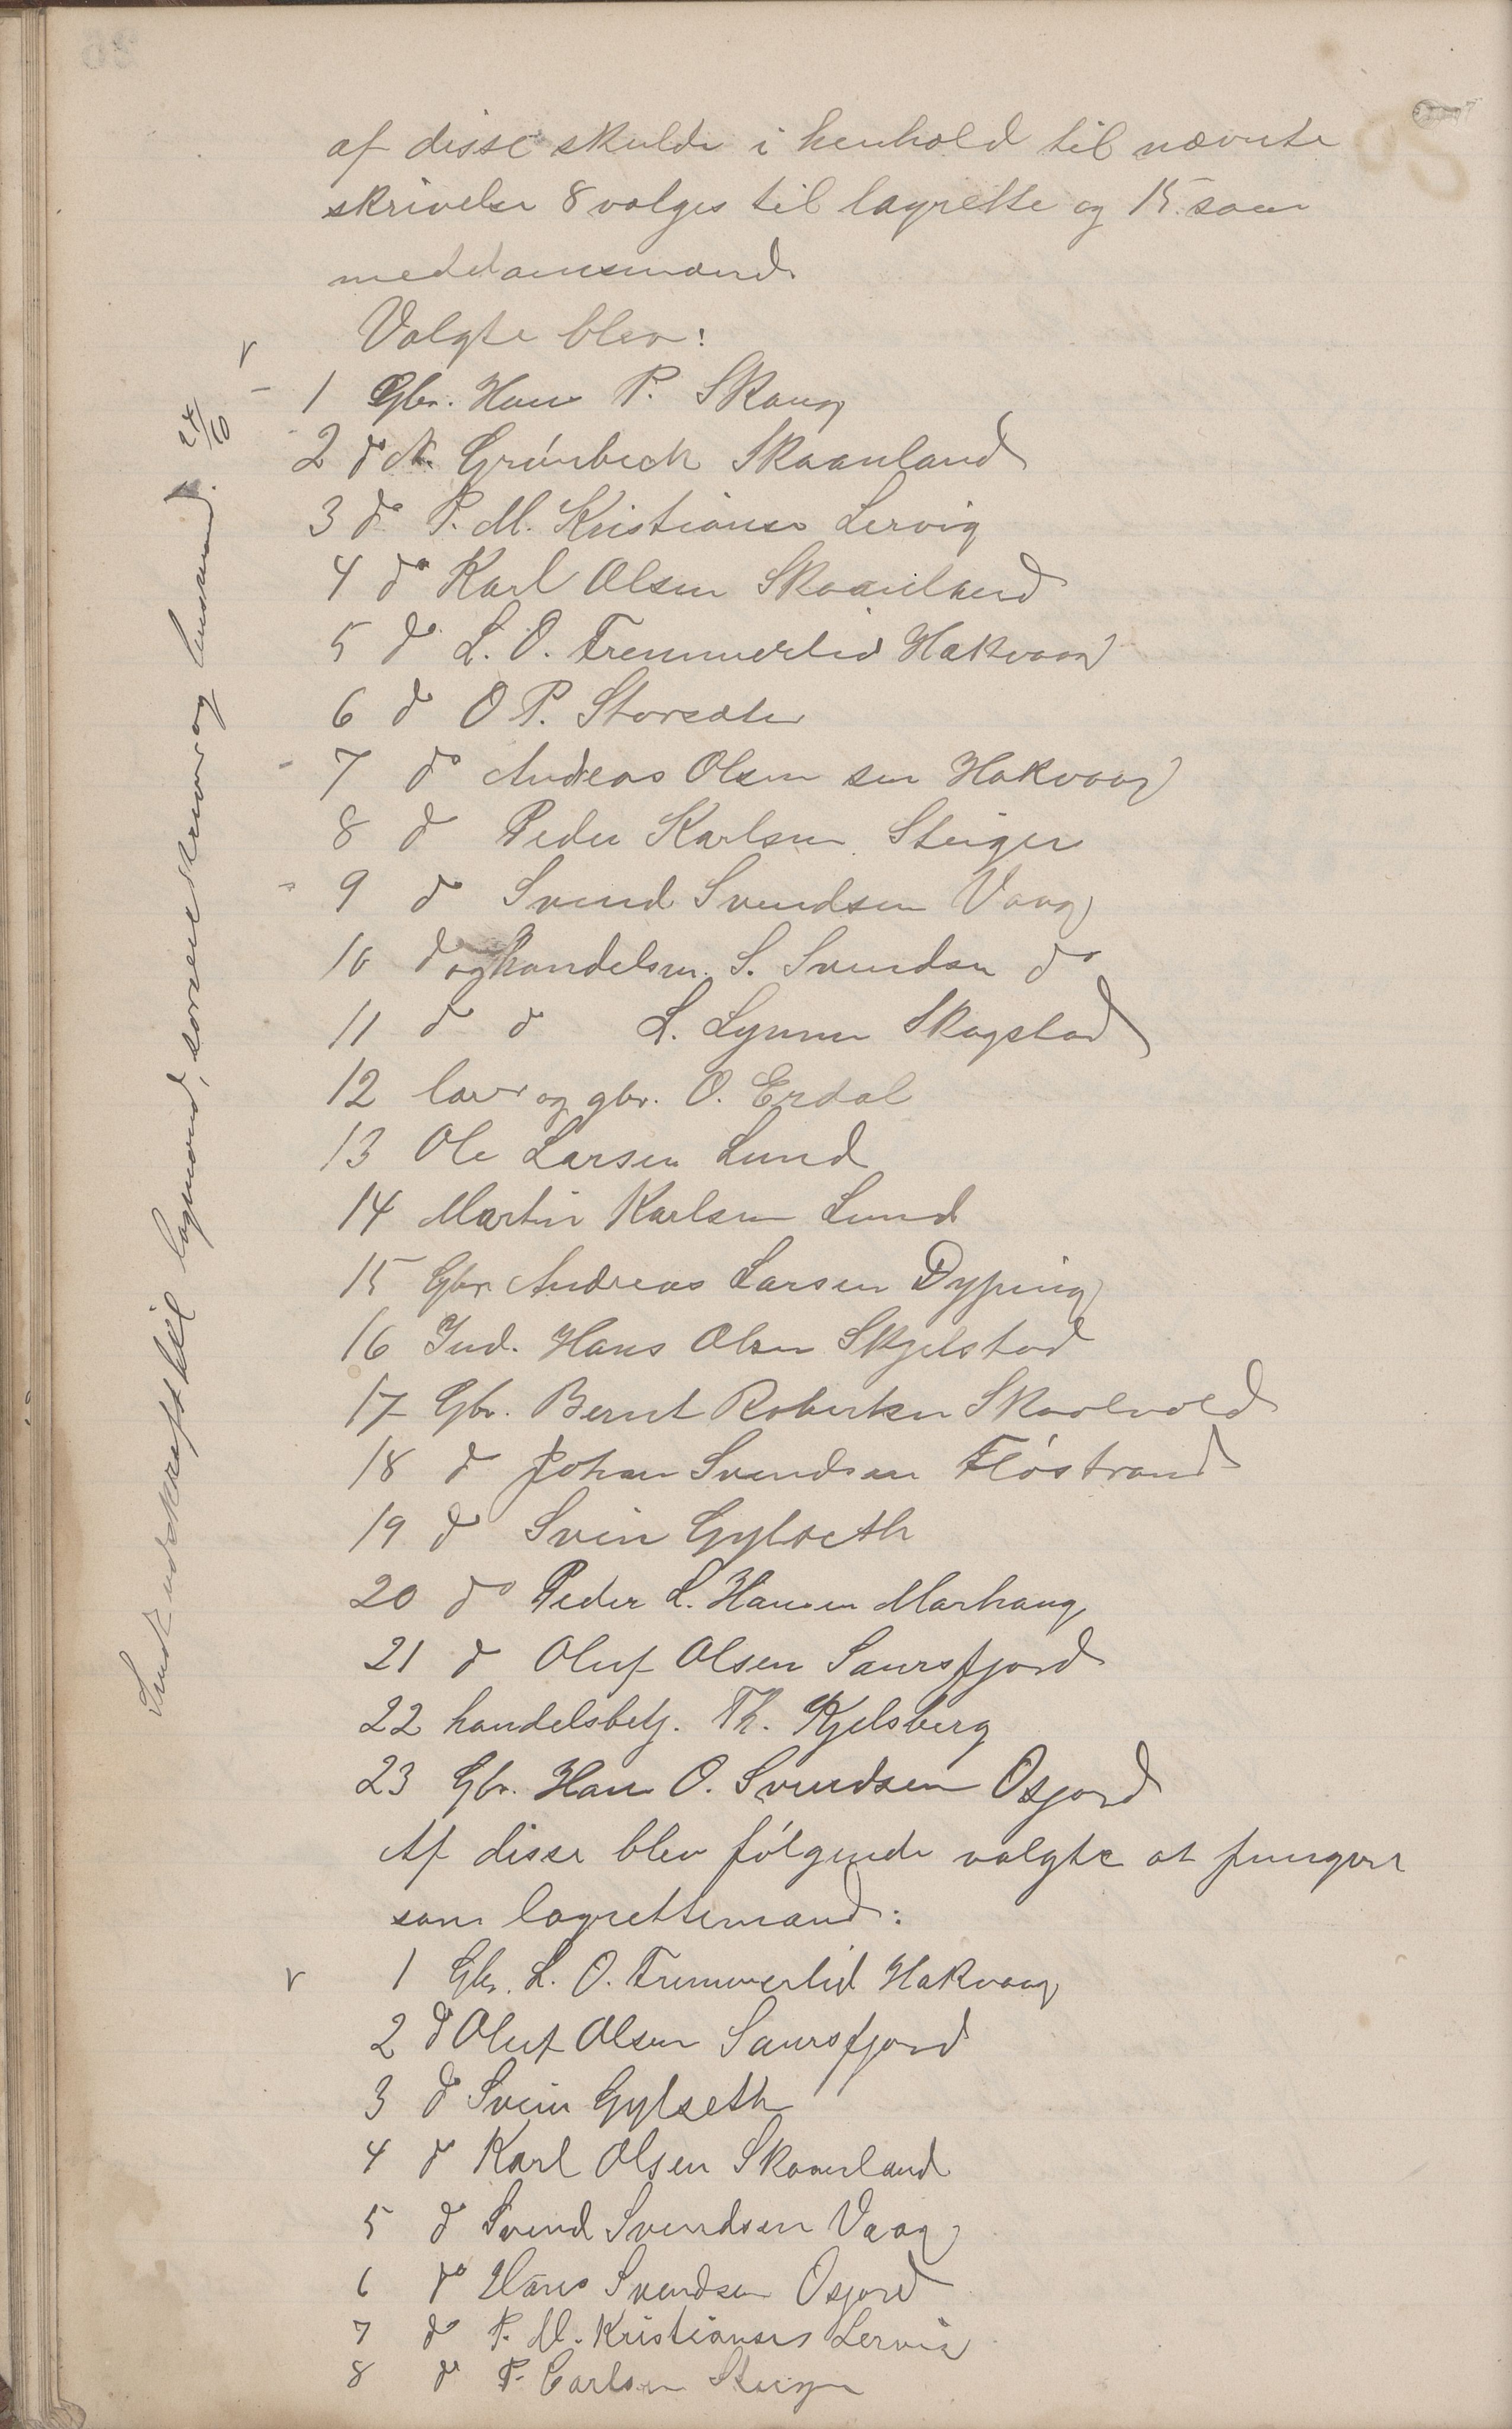 af disse skulde i henhold til nævnte
skrivelse 8 valges til lagrette og 15 som
meddomsmænd.
Valgte blev:
1 Gbr. Hans P. Skaug
2 do N. Grønbeck Skaanland
3 do P. M. Kristianse Lervig
4 do Karl Olsen Skaanland
5 do L. O. Tremmerlid Hakvaag
6 do O P. Storsæter
7 do Andreas Olsen sen Hakvaag
8 do Peder Karlsen Steiger
9 do Svend Svendsen Vaag
10 do og handelsm. S. Svendsen do
11 do do L. Lynum Skagstad
12 lær og gbr. O. Erdal
13 Ole Larsen Lund
14 Martin Karlsen Lund
15 Gbr. Andreas Larsen Dyping
16 Ind. Hans Olsen Skjelstad
17 Gbr. Bernt Robertsen Skaalvold
18 do Johan Svendsen Fløstrand
19 do Svein Gylseth
20 do Peder L. Hansen Marhaug
21 do Oluf Olsen Saursfjord
22 handelsbetj. Th. Kjelsberg
23 Gbr. Hans O. Svendsen Osjord
Af disse blev følgende valgte at fungere
som lagrettemænd:
1 Gbr. L. O. Tremmerlid Hakvaag
2 do Oluf Olsen Saursfjord
3 do Svein Gylseth
4 do Karl Olsen Skaanland
5 do Svend Svendsen Vaag
6 do Hans Svendsen Osjord
7 do P. M. Kristiansen Lervig
8 do P. Carlsen Steiger
Sendt udskraft til lagmand, sorenskriver og lensmand. 24/10